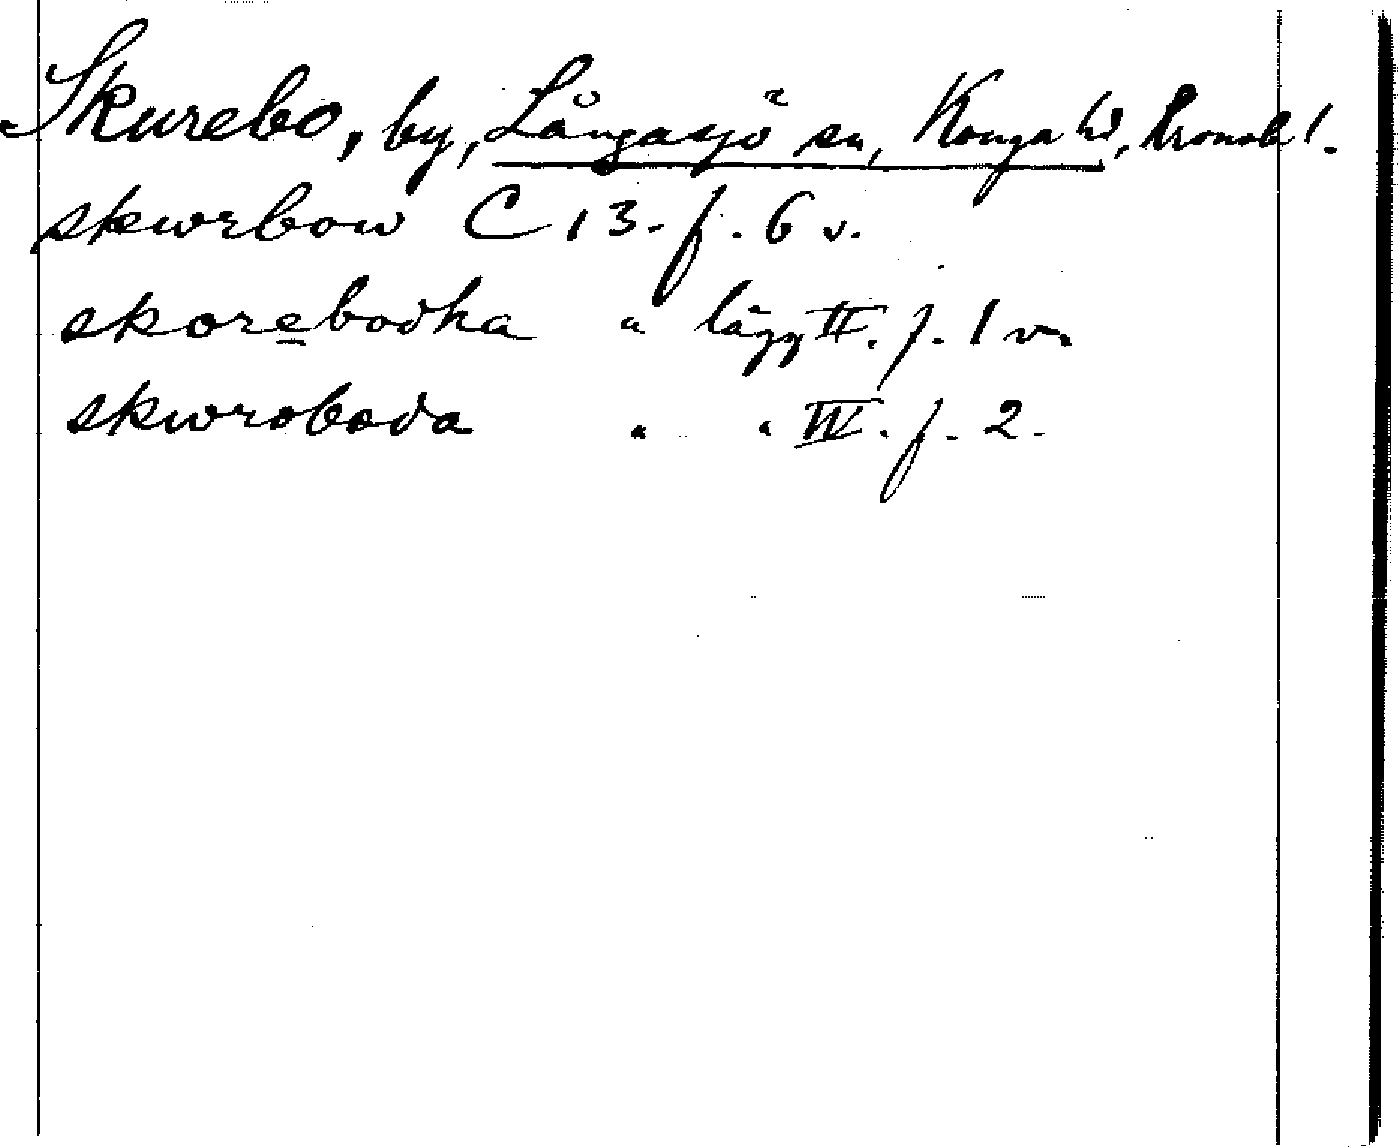 Skurebo, by, Långasjö sn, Konga hd, Kronob l.
skwrbow C 13. f. 6 v.
skorebodha " lägg II. f. 1 v.
skwroboda " " IV. f. 2.